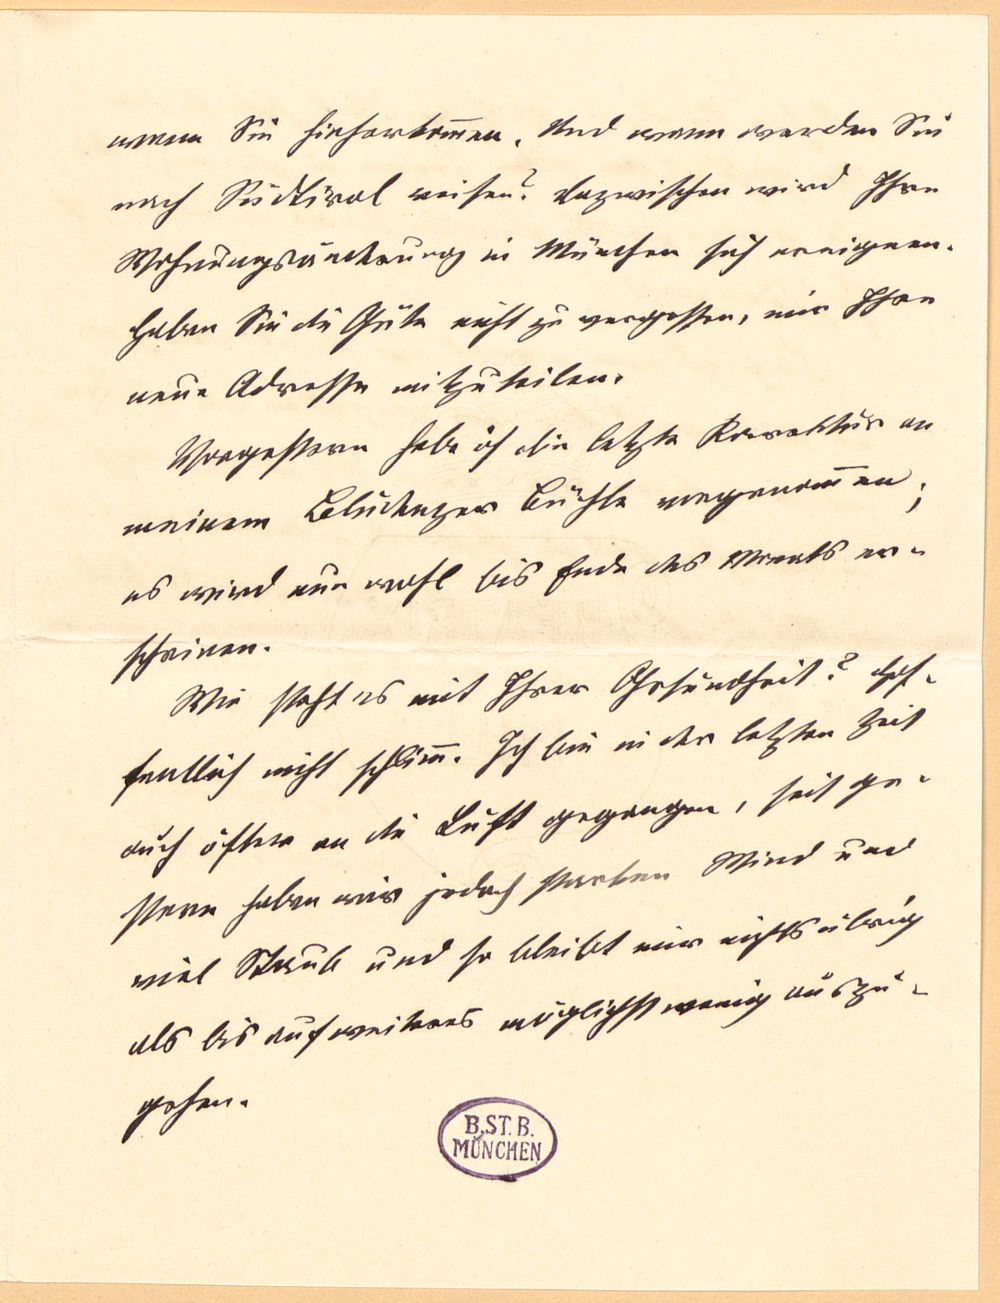 wenn Sie hieherkom̅en. Und wann werden Sie
nach Südtirol reisen? Dazwischen wird Ihre
Wohnungsänderung in München sich ereignen.
Haben Sie die Güte nicht zu vergessen, mir Ihre
neue Adresse mitzuteilen.
Vorgestern habe ich die letzte Korrektur an
meinem Bludenzer Büchle vorgenom̅en;
es wird nun wohl bis Ende des Monats er-
scheinen.
Wie steht es mit Ihrer Gesundheit? Hof-
fentlich nicht schlim̅. Ich bin in der letzten Zeit
auch öfter an die Luft gegangen, seit ge-
stern haben wir jedoch starken Wind und
viel Staub und so bleibt mir nichts übrig
als bis auf weiteres möglichst wenig auszu-
gehen.
B.ST.B.
MÜNCHEN